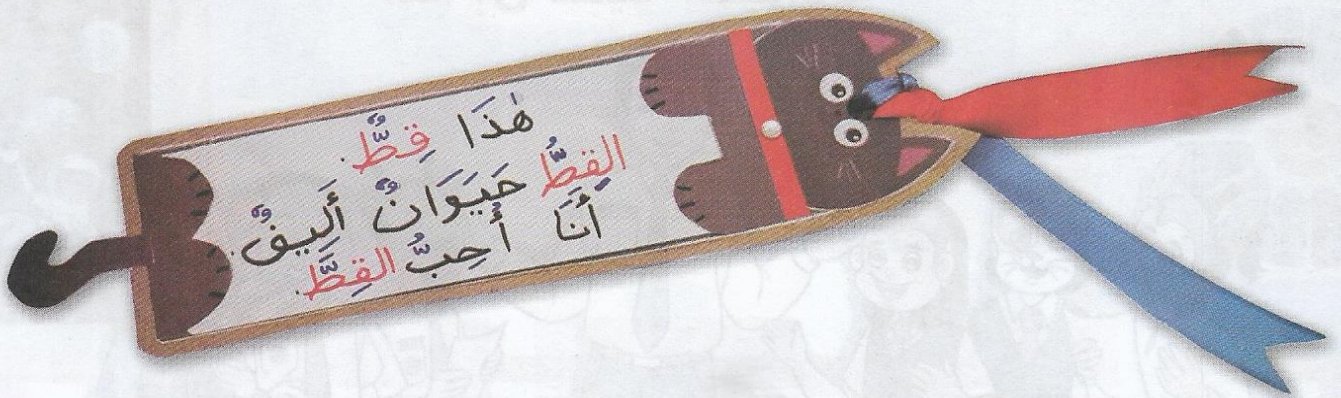 هٰذَا قِطٌّ.
القِطُّ حَيَوَانٌ أَلِيفٌ.
أَنَا أُحِبُّ القِطَّ.